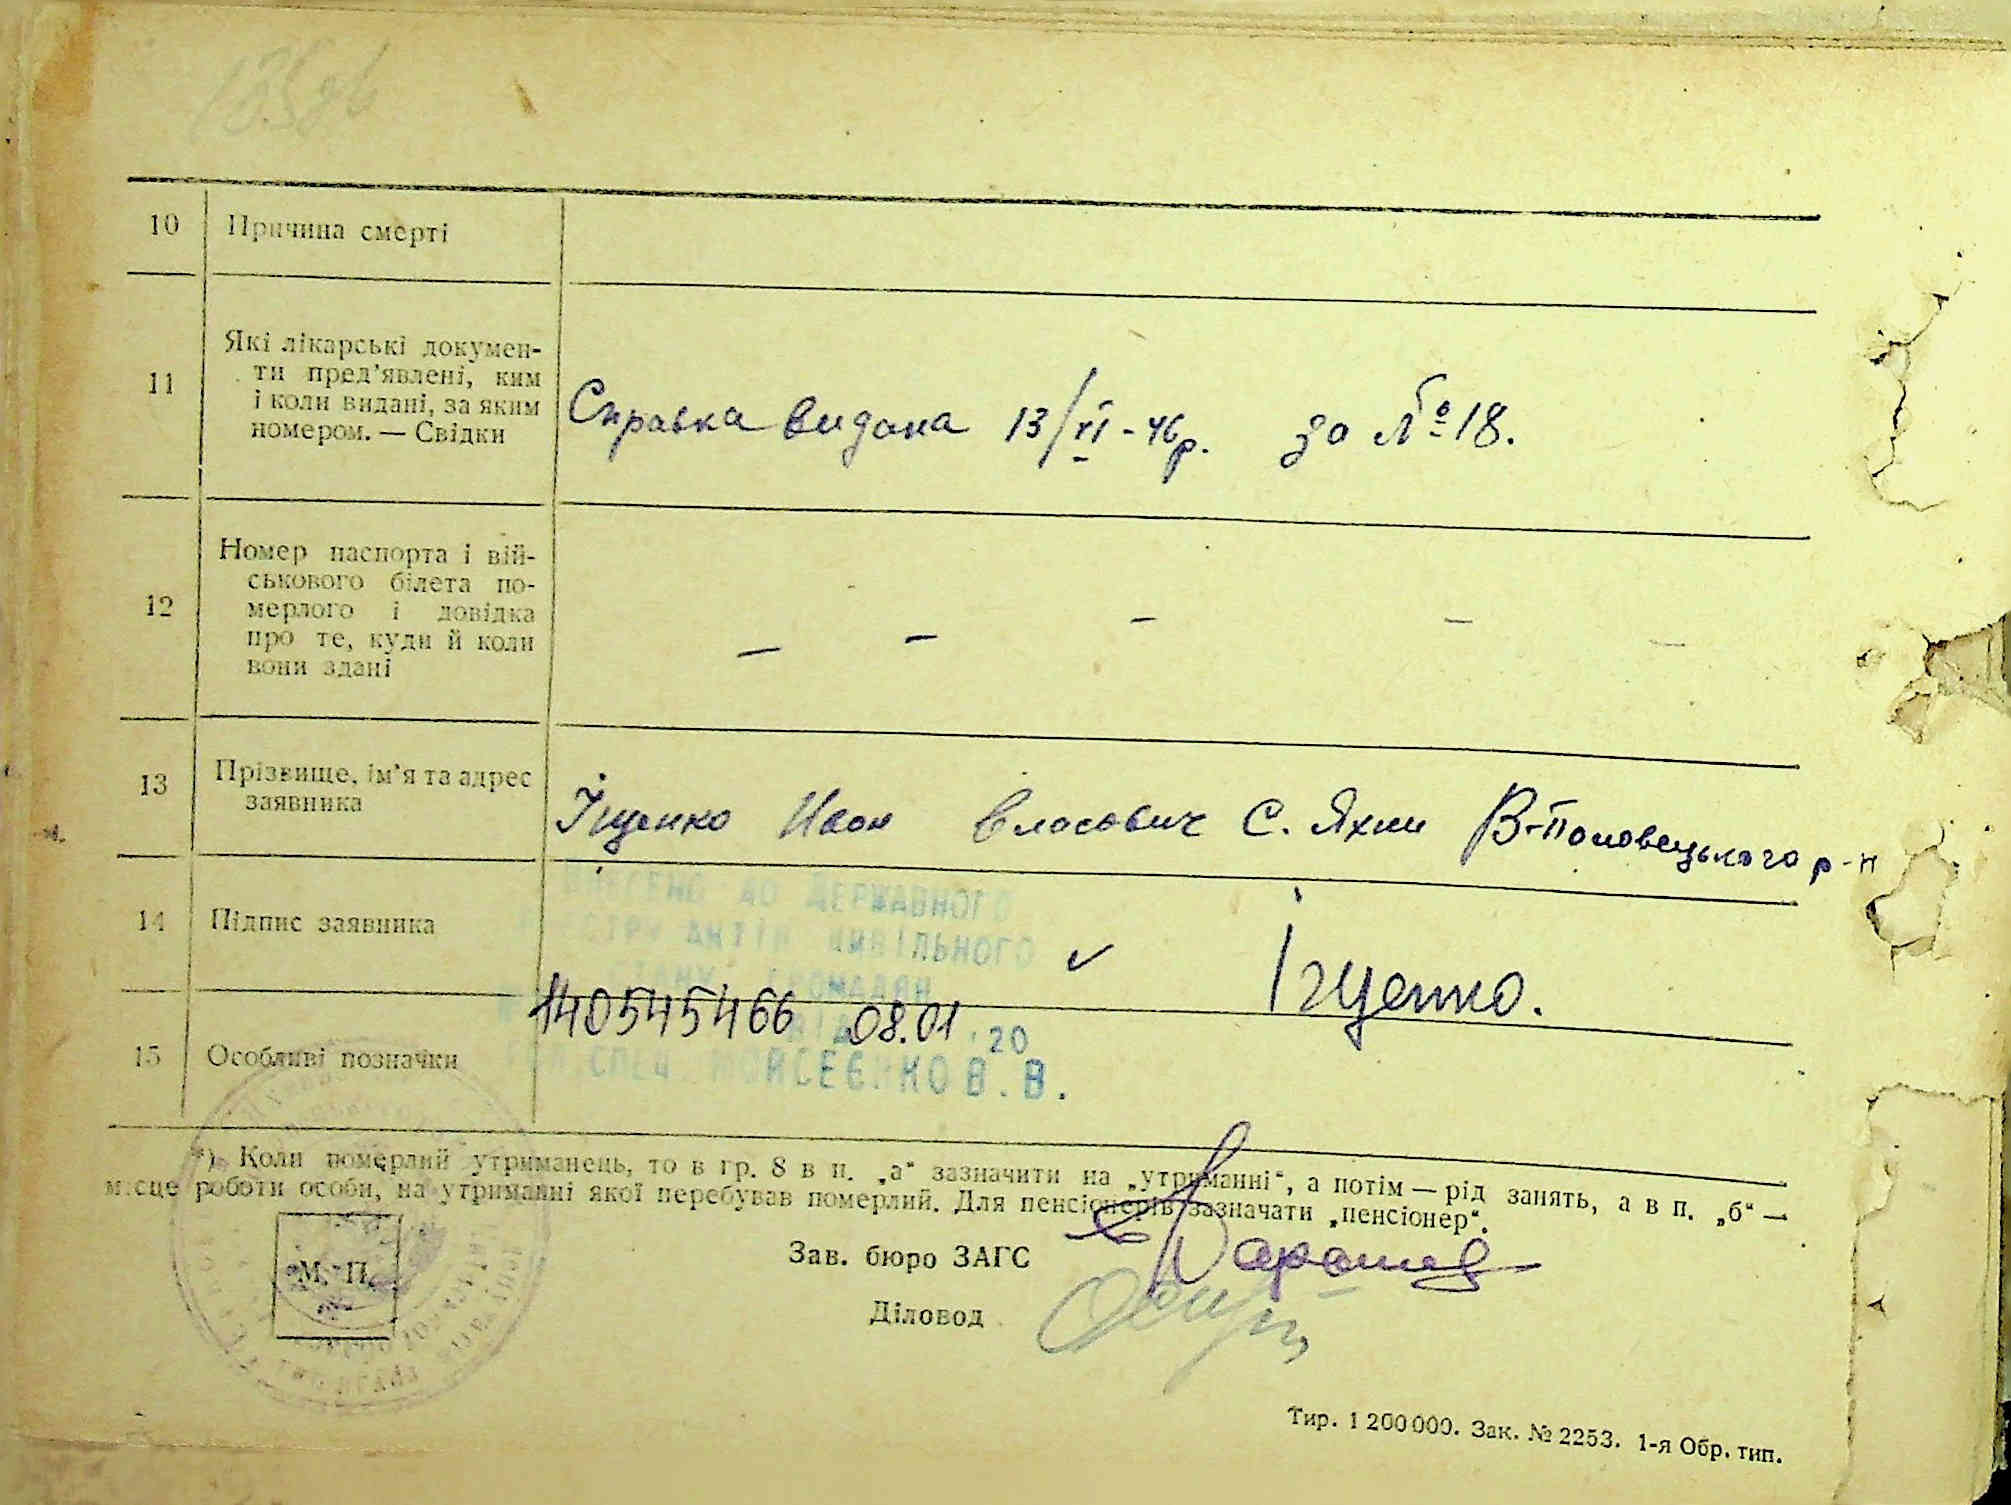 10 Причина смерті
11 Які лікарські докумен-
ти пред’явлені, ким
і коли видані, за яким
номером. — Свідки
Справка видана 13/VI - 46 р. за № 18.
12 Номер паспорта і вій-
ськового білета по-
мерлого і довідка
про те, куди й коли
вони здані
— — — — —
13 Прізвище, ім’я та адрес
заявника
Іщенко Иван Власович С. Яхни В-Половецького р-н
14 Підпис заявника
✓ Іщенко.
ВНЕСЕНО ДО ДЕРЖАВНОГО
РЕЄСТРУ АКТІВ ЦИВІЛЬНОГО
СТАНУ ГРОМАДЯН
140545466 08.01.20
15 Особливі позначки
СПЕЦ. МОЙСЕЄНКО В. В.
*) Коли померлий утриманець, то в гр. 8 в п. „а“ зазначити на „утриманні“, а потім — рід занять, а в п. „б“ —
місце роботи особи, на утриманні якої перебував померлий. Для пенсіонерів зазначати „пенсіонер“.
М. П.
Зав. бюро ЗАГС
Діловод
Тир. 1 200 000. Зак. № 2253. 1-я Обр. тип.